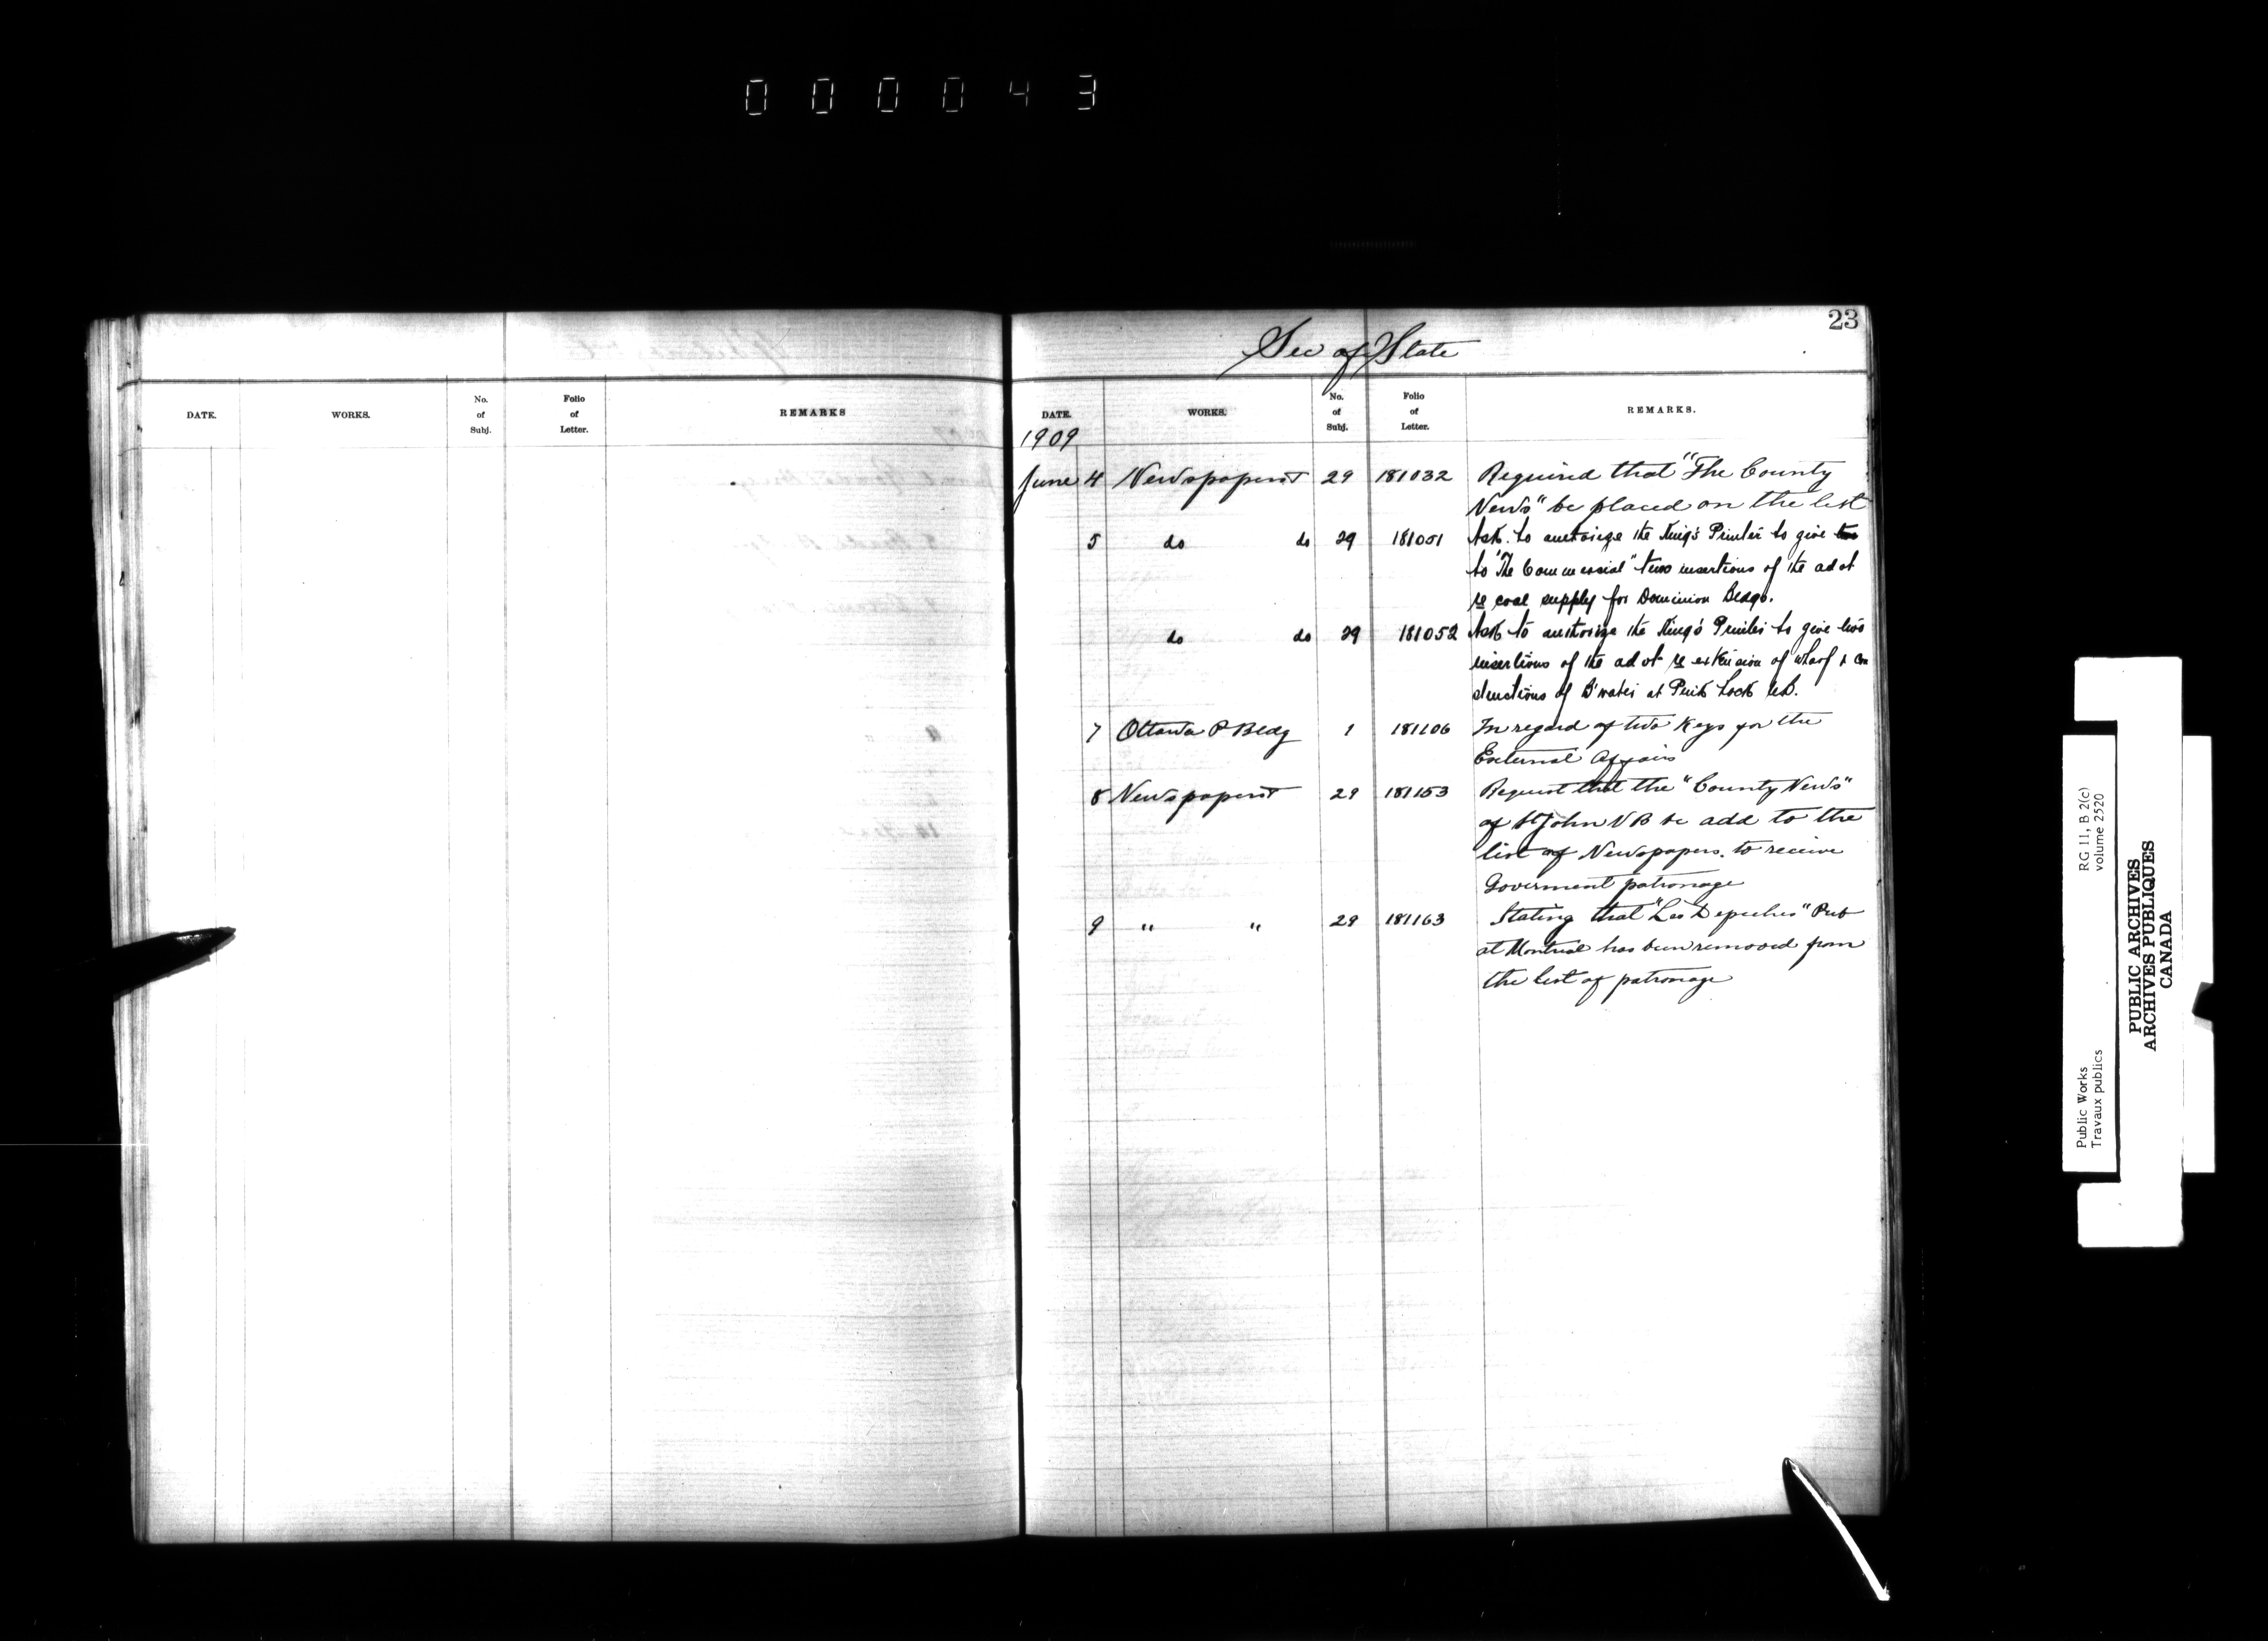 000043
23
Sec of State
DATE. WORKS. No. of Subj. Folio of Letter. REMARKS
DATE. WORKS. No. of Subj. Folio of Letter. REMARKS.
1909
June 4 Newspapers 29 181032 Required that "The County
News" be placed on the list
5 do do 29 181051 Ask. to authorize the King's Printer to give two
to "The Commercial" two insertions of the advt
re coal supply for Dominion Bldgs.
do do 29 181052 Ask to authorize the King's Printer to give two
insertions of the advt re extension of wharf & con
structions of B'water at
7 Ottawa P Bldg 1 181106 In regard of two Keys for the
External Affairs
8 Newspapers 29 181153 Request that the "County News"
of St John NB be add to the
list of Newspapers. to receive
Goverment patronage
9 " " 29 181163 Stating that "Les Depeches" Pub
at Montreal has been removed from
the list of patronage
Public Works
Travaux publics
RG 11, B 2(c)
volume 2520
PUBLIC ARCHIVES
ARCHIVES PUBLIQUES
CANADA